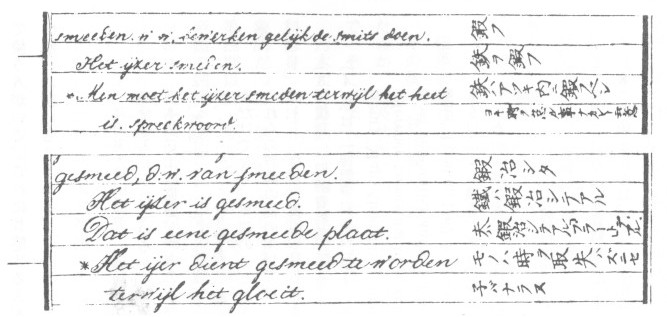 smeeden. w. w. bewerken gelijk de smits doen. 鍛フ
Het ijzer smeden. 鉄ヲ鍛フ
*. Men moet het ijzer smeden terwijl het heet 鉄ハアツキ内ニ鍛フベシ
is. spreekwoord.
gesmeed, d. w. van smeeden. 鍛冶シタ
Het ijzer is gesmeed. 鐵ハ鍛冶シテアル
Dat is eene gesmeede plaat. 鍛冶シタ
* Het ijer dient gesmeed te worden モノハ時ヲ取失ハズニセ
terwijl het gloeit. 子バナラヌ